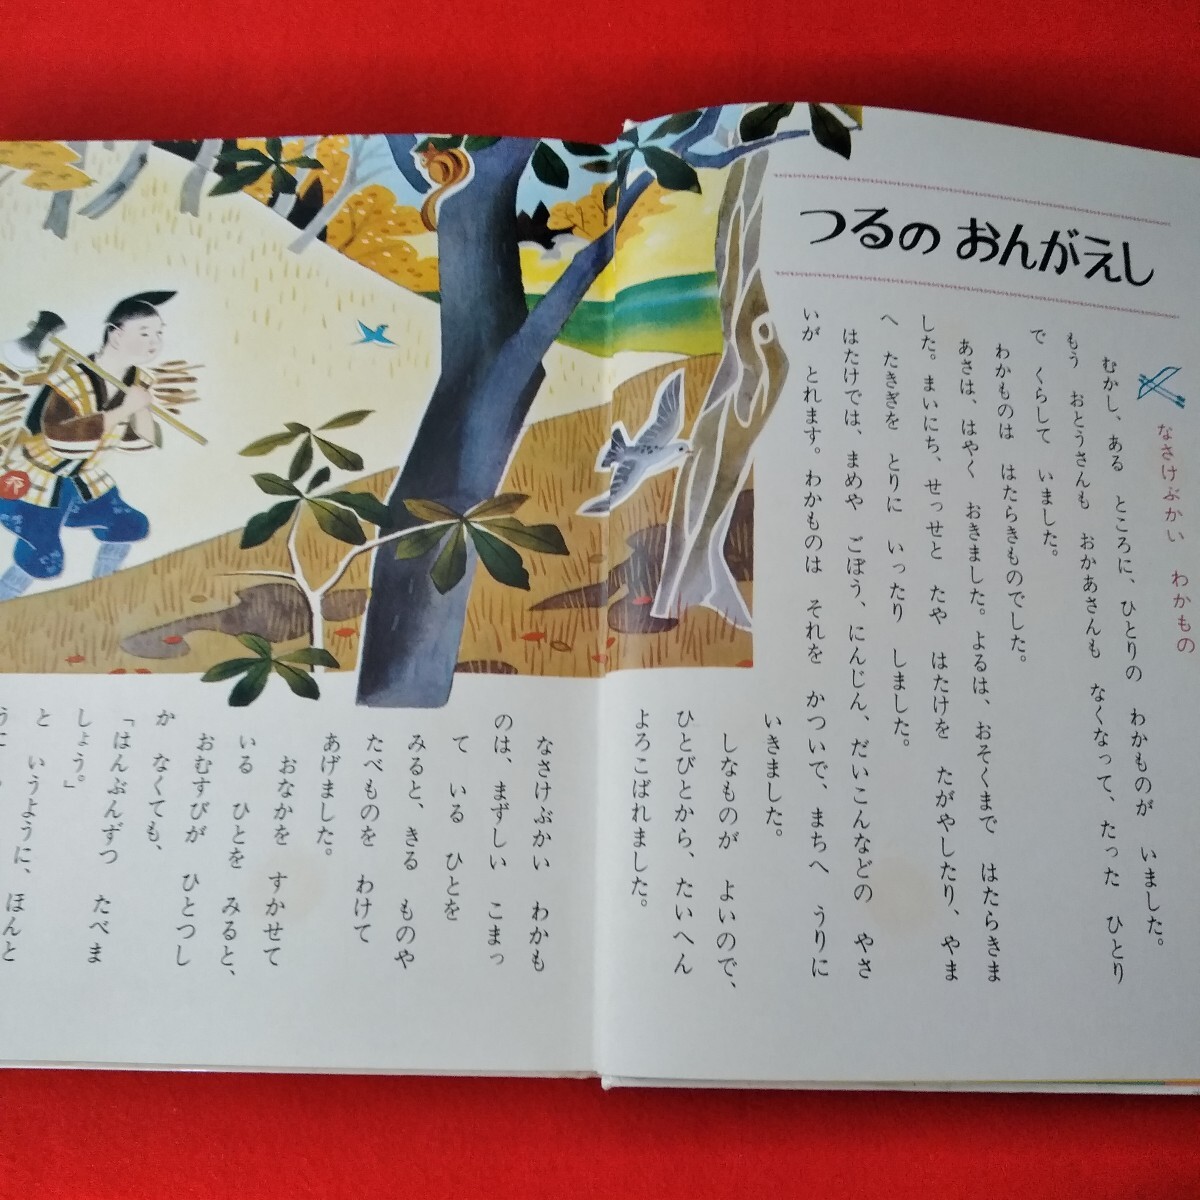 つるの おんがえし
なさけぶかい わかもの
むかし、ある ところに、ひとりの わかものが いました。
もう おとうさんも おかあさんも なくなって、たった ひとり
で くらして いました。
わかものは はたらきものでした。
あさは、はやく おきました。よるは、おそくまで はたらきま
した。まいにち、せっせと たや はたけを たがやしたり、やま
へ たきぎを とりに いったり しました。
はたけでは、まめや ごぼう、にんじん、だいこんなどの やさ
いが とれます。わかものは それを かついで、まちへ うりに
いきました。
しなものが よいので、
ひとびとから、たいへん
よろこばれました。
なさけぶかい わかも
のは、まずしい こまっ
て いる ひとを
みると、きる ものや
たべものを わけて
あげました。
おなかを すかせて
いる ひとを みると、
おむすびが ひとつし
か なくても、
「はんぶんずつ たべま
しょう。」
と いうように、ほんと
うに